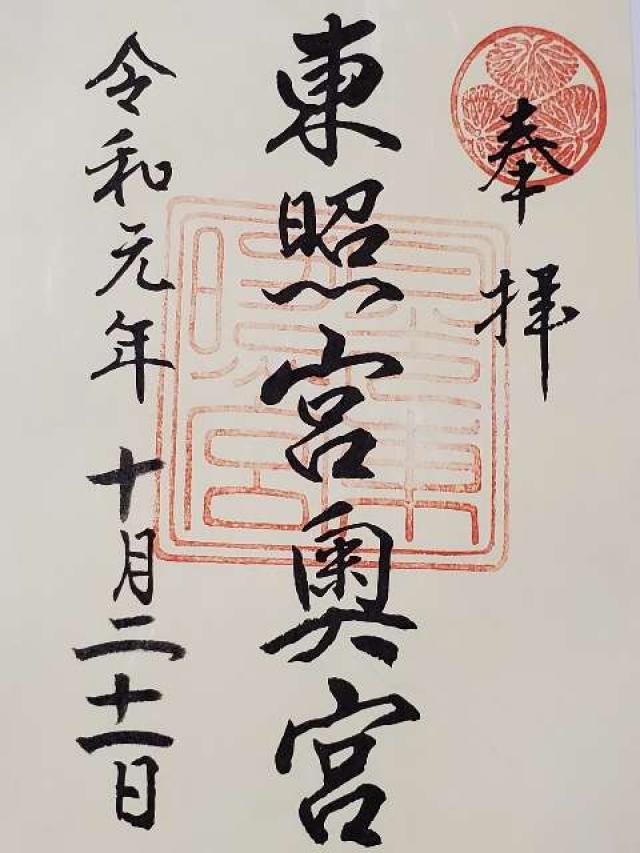 奉拝
東照宮奥宮
令和元年十月二十一日